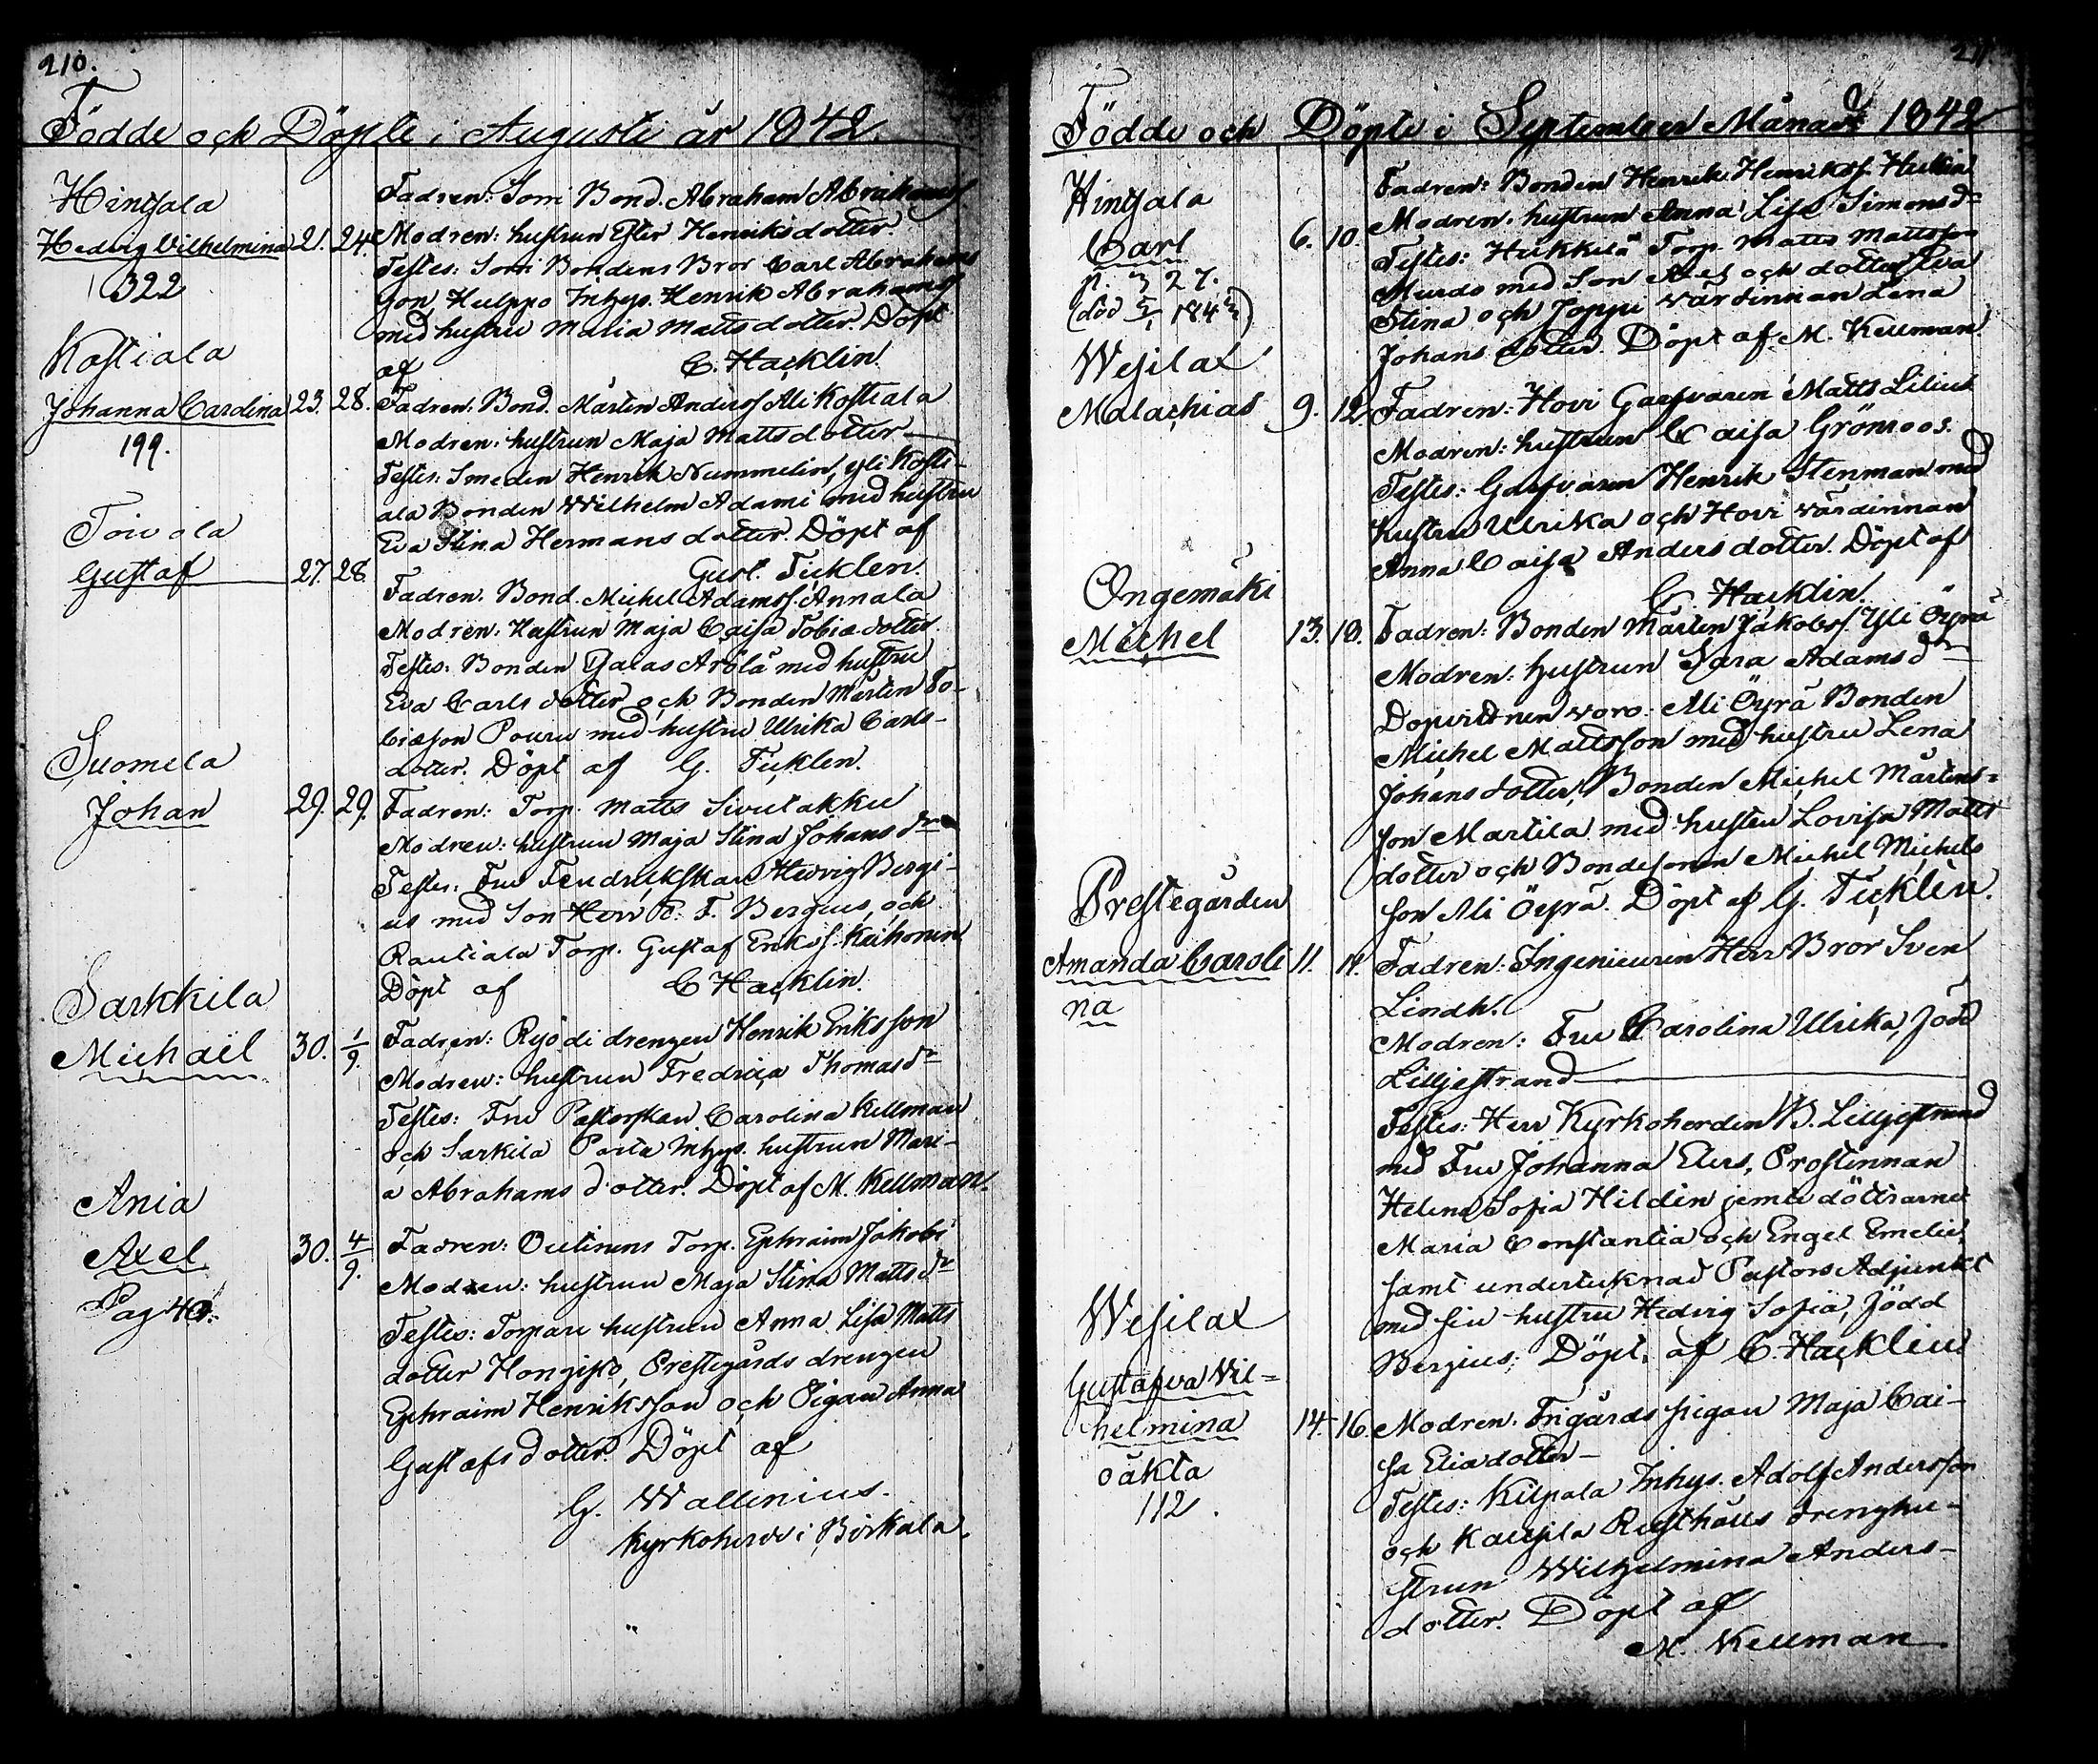 210.
Födde och Döpte i Augusti år 1842.
Hinsala
Hedvig Vilhelmina 21. 24.
322
Fadren: Sorri Bond. Abraham Abrahamss
Modren: hustrun Ester Henriksdotter
Testes: Sorri Bondens Bror Carl Abrahams
son, Hulppo Inhys. Henrik Abrahamss
med hustru Maria Mattsdotter. Döpt
af C. Hacklin.
Kostiala
Johanna Carolina 23. 28.
199.
Fadren: Bond. Mårten Anderss Ali Kostiala
Modren: hustrun Maja Mattsdotter
Testes: Smeden Henrik Nummelin, Yli Kosti-
ala Bonden Wilhelm Adami med hustru
Eva Stina Hermansdotter. Döpt af
Gust. Ticklen.
Toivola
Gustaf 27. 28.
Fadren. Bond. Michel Adamss. Annala
Modren: Hustrun Maja Caisa Tobiædotter.
Testes: Bonden Arölä med hustru
Eva Carlsdotter och Bonden Mårten To-
biæson Pouru med hustru Ulrika Carls-
dotter. Döpt af G. Ticklen.
Suomela
Johan 29. 29.
Fadren: Torp. Matts Sivutakku
Modren: hustrun Maja Stina Johansdr
Testes: Fru Fendrickskan Hedvig Bergi-
us med Son Herr C. F. Bergius, och
Rautiala Torp. Gustaf Erikss. Keihonen
Döpt af C Hacklin.
Sarkkila
Michaël 30. 1/9.
Fadren: Ryödi drengen Henrik Eriksson
Modren: hustrun Fredrica Thomasdr
Testes: Fru Pastorskan Carolina Kellman
och Sarkila Inhys. hustrun Mari-
a Abrahamsdotter. Döpt af M. Kellman.
Ania
Axel 30. 4/9.
Pag 40.
Fadren: Outinens Torp. Ephraim Jakobs
Modren: hustrun Maja Stina Mattsdr
Testes: Torpare hustrun Anna Lisa Matts
dotter Hongisto, Prestegårds drengen
Ephraim Henriksson och Pigan Anna
Gustafsdotter. Döpt af
G. Wallenius.
Kyrkoherde i Birkala.
211.
Födde och Döpte i September Månad 1842
Hinsala
Carl 6. 10.
p. 327.
(död 5/1 1843)
Fadren: Bonden Henrik Henrikss.
Modren: hustrun Anna Lisa Simonsdr
Testes: Hukkila Torp. Matts Mattsson
Murdo med Son Axel och dotter Eva
Stina och Joppi värdinnan Lena
Johansdotter. Döpt af M. Kellman
Wesilax
Malachias 9. 12.
Fadren: Hovi Garfvaren Matts Lilius
Modren: hustrun Caisa Grönroos.
Testes: Garfvaren Henrik Stenman med
hustru Ulrika och Hovi värdinnan
Anna Caisa Andersdotter. Döpt af
C. Hacklin.
Ongemäki
Michel 13. 18.
Fadren: Bonden Mårten Jakobss. Yli Öyrä
Modren: hustrun Sara Adamsdr
Dopvittnen voro: Ali Öyrä Bonden
Michel Mattsson med hustru Lena
Johansdotter, Bonden Michel Mårtens-
son Martila med hustru Lovisa Matts
dotter och Bondesonen Michel Michels
son Ali Öyrä. Döpt af G. Ticklen.
Prestegården
Amanda Caroli 11. 14.
na
Fadren: Ingenieuren Herr Bror Sven
Lindh.
Modren: Fru Carolina Ulrika, född
Lilljestrand
Testes: Herr Kyrkoherden B. Lilljestrand
med Fru Johanna Elers, Prostinnan
Helena Sofia Hildén jemte döttrarne
Maria Constantia och Engel Emelie,
samt undertecknad Pastors Adjunkt
med sin hustru Hedvig Sofia, född
Bergius; Döpt. af C. Hacklin
Wesilax
Gustafva Vil=
helmina 14. 16.
oäkta
112.
Modren: Frigårds pigan Maja Cai-
sa Eliædotter-
Testes: Kilpala Inhys. Adolf Andersson
och Kaupila Rusthålls drenghu-
strun Wilhelmina Anders-
dotter. Döpt af
M. Kellman.